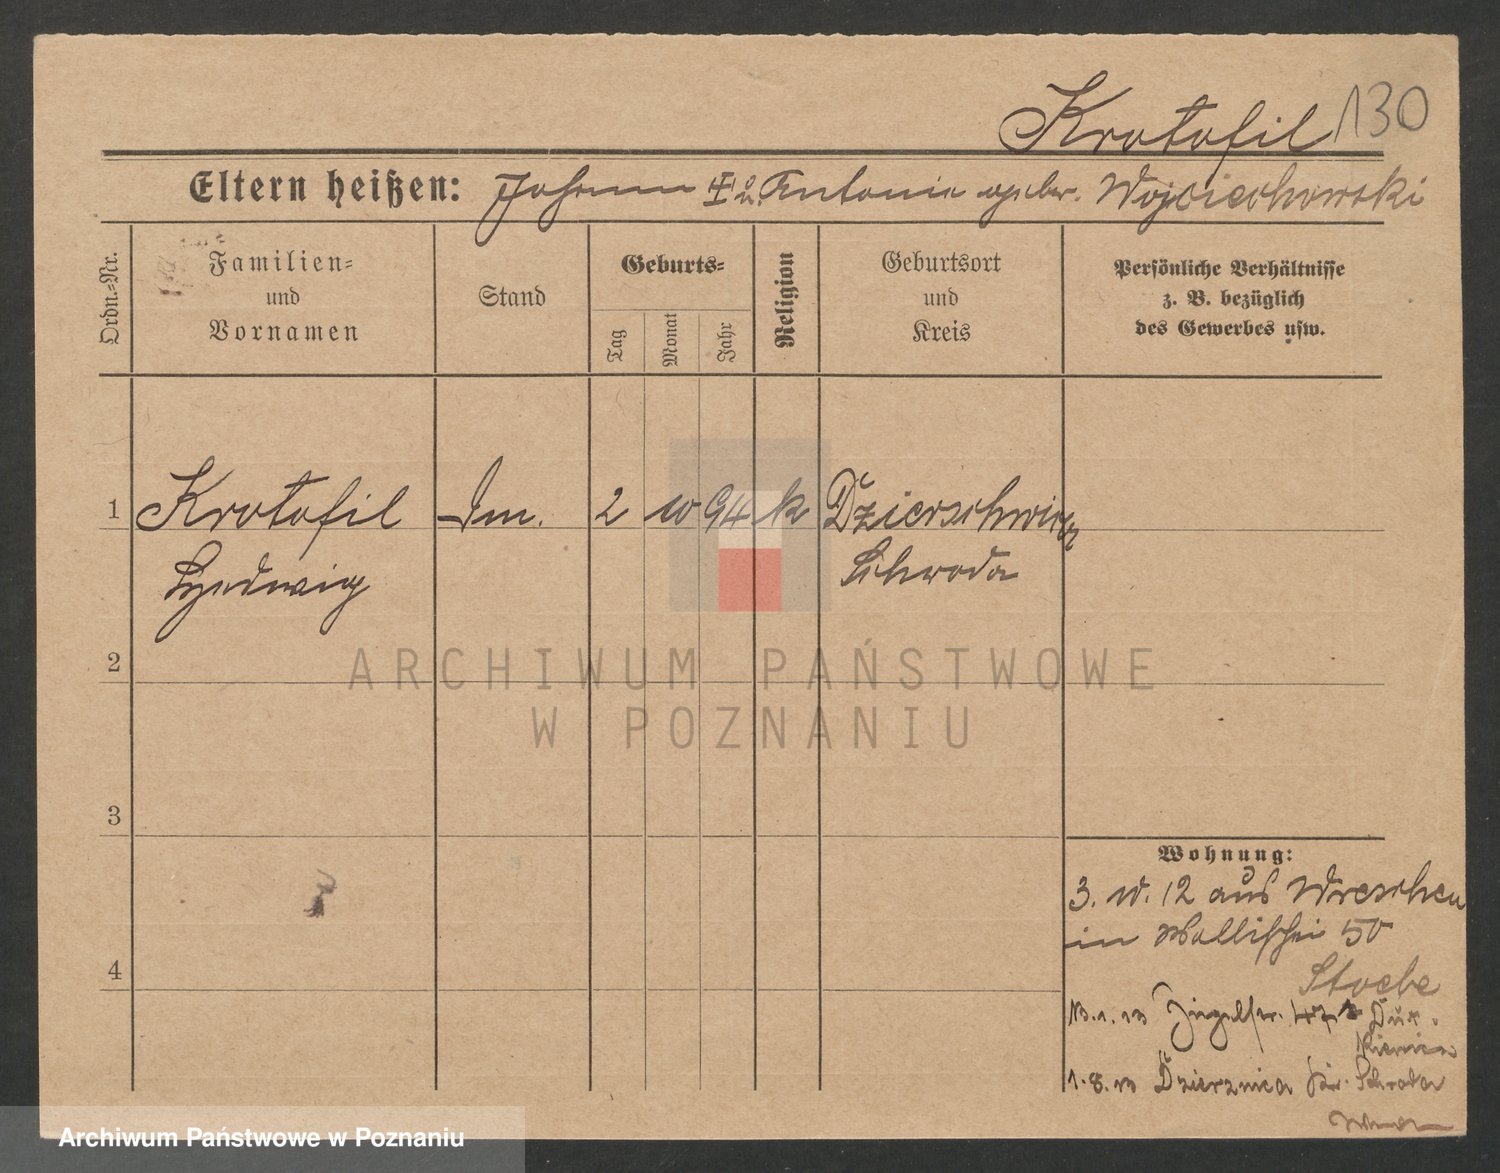 Krotofil 130
Eltern heißen: Johann u. Antonie gebor. Wojciechowski
Ordn.-Nr.
Familien-
und
Vornamen
Stand
Geburts-
Tag
Monat
Jahr
Religion
Geburtsort
und
Kreis
Persönliche Verhältnisse
z. B. bezüglich
des Gewerbes usw.
1 Krotofil 2 10 94 k
Hedwig Schroda
2
ARCHIWUM PAŃSTWOWE
W POZNANIU
3
Wohnung:
3. 10. 12 aus Wreschen
in Wallischei 50
4
Stoebe
13.1.13
1.8.13 Dzierznica Kr. Schroda
Archiwum Państwowe w Poznaniu